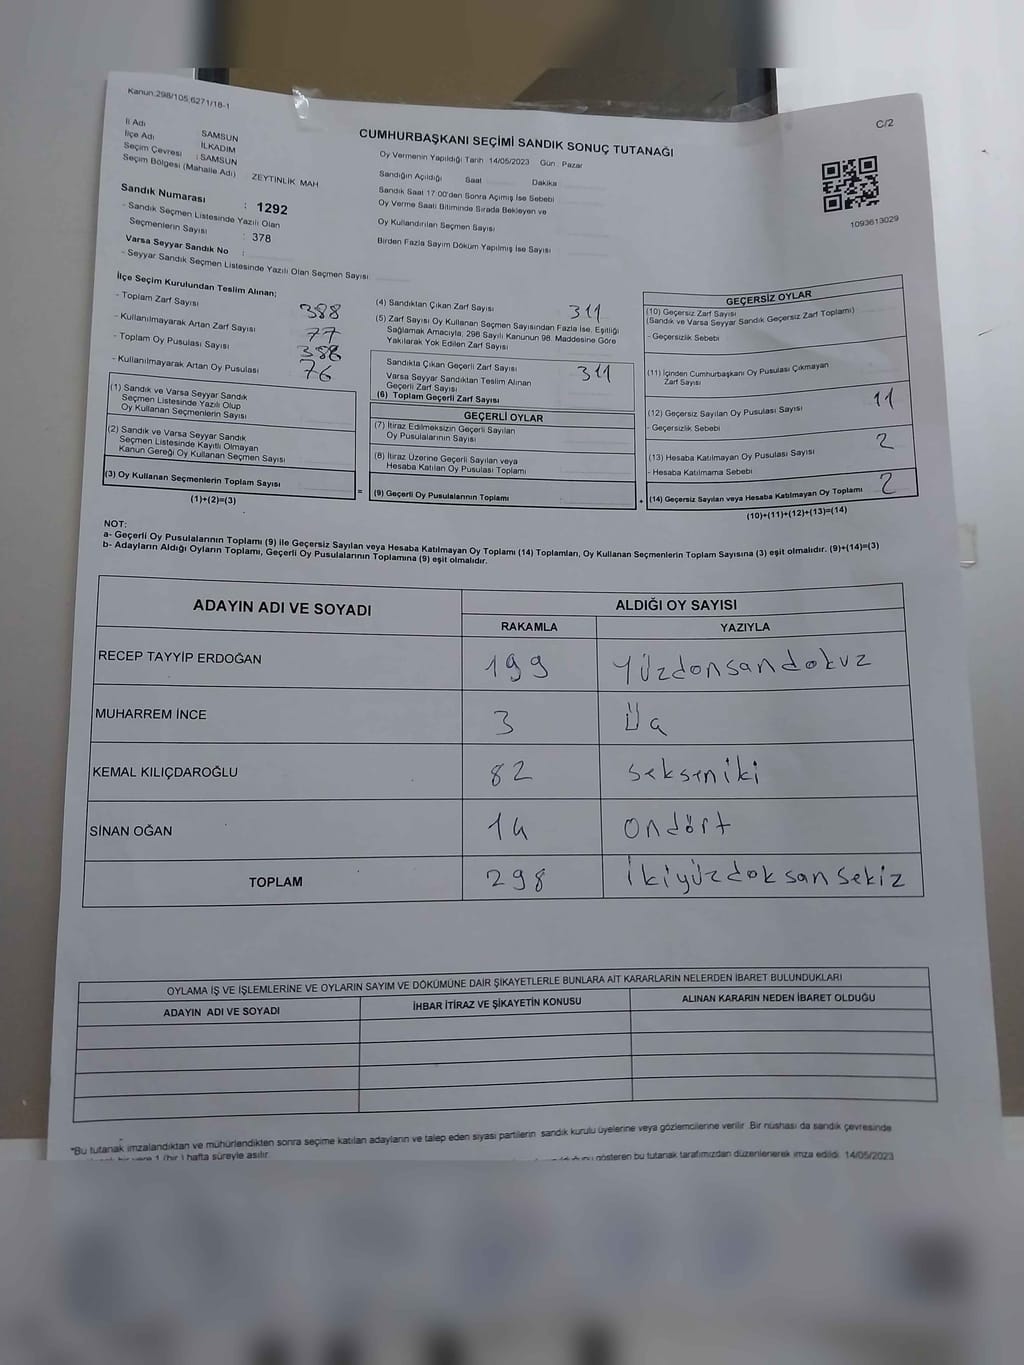 Kanun:298/105,6271/18-1
C/2
CUMHURBAŞKANI SEÇİMİ SANDIK SONUÇ TUTANAĞI
İl Adı SAMSUN
İlçe Adı İLKADIM
Seçim Çevresi : SAMSUN
Seçim Bölgesi (Mahalle Adı) ZEYTİNLİK MAH
Sandık Numarası : 1292
- Sandık Seçmen Listesinde Yazılı Olan
Seçmenlerin Sayısı : 378
Varsa Seyyar Sandık No :
- Seyyar Sandık Seçmen Listesinde Yazılı Olan Seçmen Sayısı
Oy Vermenin Yapıldığı Tarih 14/05/2023 Gün : Pazar
Sandığın Açıldığı Saat Dakika
Sandık Saat 17:00'dan Sonra Açımış İse Sebebi
Oy Verme Saati Bitiminde Sırada Bekleyen ve
Oy Kullandırılan Seçmen Sayısı
Birden Fazla Sayım Döküm Yapılmış İse Sayısı
1093613029
İlçe Seçim Kurulundan Teslim Alınan;
- Toplam Zarf Sayısı 388
- Kullanılmayarak Artan Zarf Sayısı 77
- Toplam Oy Pusulası Sayısı 388
- Kullanılmayarak Artan Oy Pusulası 76
(1) Sandık ve Varsa Seyyar Sandık
Seçmen Listesinde Yazılı Olup
Oy Kullanan Seçmenlerin Sayısı
(2) Sandık ve Varsa Seyyar Sandık
Seçmen Listesinde Kayıtlı Olmayan
Kanun Gereği Oy Kullanan Seçmen Sayısı
(3) Oy Kullanan Seçmenlerin Toplam Sayısı
(1)+(2)=(3)
=
(4) Sandıktan Çıkan Zarf Sayısı 311
(5) Zarf Sayısı Oy Kullanan Seçmen Sayısından Fazla İse, Eşitliği
Sağlamak Amacıyla, 298 Sayılı Kanunun 98. Maddesine Göre
Yakılarak Yok Edilen Zarf Sayısı
Sandıkta Çıkan Geçerli Zarf Sayısı 311
Varsa Seyyar Sandıktan Teslim Alınan
Geçerli Zarf Sayısı
(6) Toplam Geçerli Zarf Sayısı
GEÇERLİ OYLAR
(7) İtiraz Edilmeksizin Geçerli Sayılan
Oy Pusulalarının Sayısı
(8) İtiraz Üzerine Geçerli Sayılan veya
Hesaba Katılan Oy Pusulası Toplamı
(9) Geçerli Oy Pusulalarının Toplamı
+
GEÇERSİZ OYLAR
(10) Geçersiz Zarf Sayısı
(Sandık ve Varsa Seyyar Sandık Geçersiz Zarf Toplamı)
- Geçersizlik Sebebi
(11) İçinden Cumhurbaşkanı Oy Pusulası Çıkmayan
Zarf Sayısı
(12) Geçersiz Sayılan Oy Pusulası Sayısı 11
- Geçersizlik Sebebi
(13) Hesaba Katılmayan Oy Pusulası Sayısı 2
- Hesaba Katılmama Sebebi
(14) Geçersiz Sayılan veya Hesaba Katılmayan Oy Toplamı 2
(10)+(11)+(12)+(13)=(14)
NOT:
a- Geçerli Oy Pusulalarının Toplamı (9) ile Geçersiz Sayılan veya Hesaba Katılmayan Oy Toplamı (14) Toplamları, Oy Kullanan Seçmenlerin Toplam Sayısına (3) eşit olmalıdır. (9)+(14)=(3)
b- Adayların Aldığı Oyların Toplamı, Geçerli Oy Pusulalarının Toplamına (9) eşit olmalıdır.
ADAYIN ADI VE SOYADI ALDIĞI OY SAYISI
RAKAMLA YAZIYLA
RECEP TAYYİP ERDOĞAN 199 Yüzdonsandokuz
MUHARREM İNCE 3 Üç
KEMAL KILIÇDAROĞLU 82 Sekseniki
SİNAN OĞAN 14 Ondört
TOPLAM 298 İkiyüzdoksansekiz
OYLAMA İŞ VE İŞLEMLERİNE VE OYLARIN SAYIM VE DÖKÜMÜNE DAİR ŞİKAYETLERLE BUNLARA AİT KARARLARIN NELERDEN İBARET BULUNDUKLARI
ADAYIN ADI VE SOYADI İHBAR İTİRAZ VE ŞİKAYETİN KONUSU ALINAN KARARIN NEDEN İBARET OLDUĞU
*Bu tutanak imzalandıktan ve mühürlendikten sonra seçime katılan adayların ve talep eden siyasi partilerin sandık kurulu üyelerine veya gözlemcilerine verilir. Bir nüshası da sandık çevresinde
bir yere 1 (bir) hafta süreyle asılır. gösteren bu tutanak tarafımızdan düzenlenerek imza edildi. 14/05/2023